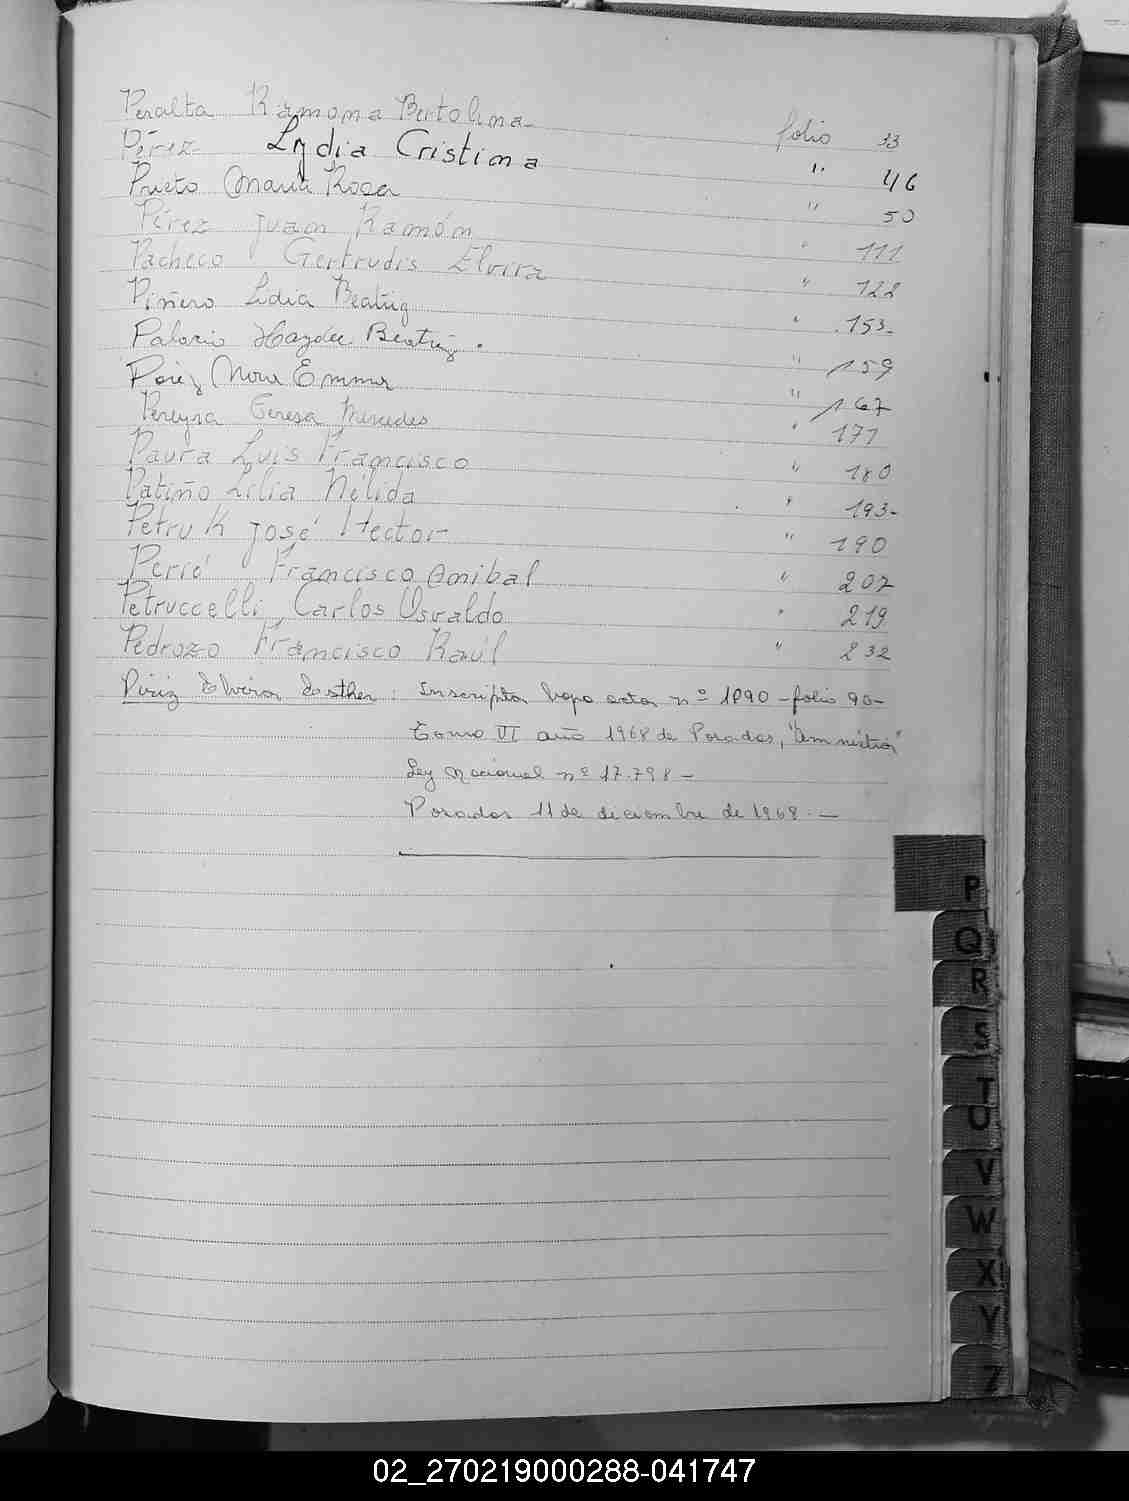 Peralta Ramona Bertolina folio 33
Pérez Lydia Cristina " 46
Prieto Maria Rosa " 50
Pérez Juan Ramón " 111
Pacheco Gertrudis Elvira " 122
Piñero Lidia Beatriz " 153-
Palacio Haydée Beatriz. " 159
Nora Emma " 167
Pereyra Teresa Mercedes " 171
Paura Luis Francisco " 180
Patiño Lilia Nélida " 193-
Petruk José Hector " 190
Perié Francisco Anibal " 207
Petruccelli, Carlos Osvaldo " 219
Pedrozo Francisco Raúl " 232
Piriz Elvira Esther: Inscripta bajo acta nº 1090 - folio 90-
Tomo VI año 1968 de Posadas, "Amnistia"
Ley Nacional nº 17.798 -
Posadas 11 de diciembre de 1968 -
P
Q
R
S
T
U
V
W
X
Y
Z
02_270219000288-041747